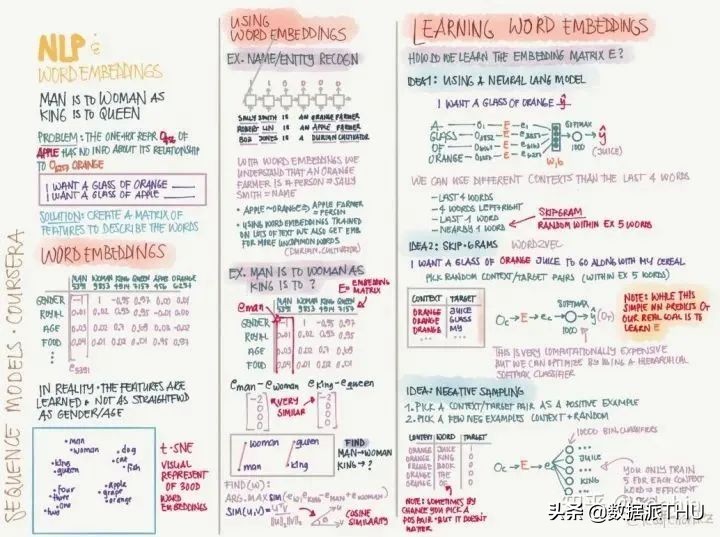 SEQUENCE MODELS · COURSERA
NLP &
WORD EMBEDDINGS
MAN IS TO WOMAN AS
KING IS TO QUEEN
PROBLEM: THE ONE-HOT REPR. OF
APPLE HAS NO INFO ABOUT ITS RELATIONSHIP
TO ORANGE
I WANT A GLASS OF ORANGE ____
I WANT A GLASS OF APPLE ____
SOLUTION: CREATE A MATRIX OF
FEATURES TO DESCRIBE THE WORDS
WORD EMBEDDINGS
MAN WOMAN KING QUEEN APPLE ORANGE
5391 9853 4914 7157 456 6257
GENDER -1 1 -0.95 0.97 0.00 0.01
ROYAL 0.01 0.02 0.93 0.95 -0.01 0.00
AGE 0.03 0.02 0.7
FOOD
e5391
IN REALITY · THE FEATURES ARE
LEARNED & NOT AS STRAIGHTFWD
AS GENDER/AGE
man
woman
dog
cat
fish
king
queen
four
three
one
two
apple
grape
orange
t-SNE
VISUAL
REPRESENT
OF 300D
WORD
EMBEDDINGS
USING
WORD EMBEDDINGS
EX. NAME/ENTITY RECOGN
1 1 0 0 0 0
SALLY SMITH IS AN ORANGE FARMER
ROBERT LIN IS AN APPLE FARMER
BOB JONES IS A DURIAN CULTIVATOR
WITH WORD EMBEDDINGS WE
UNDERSTAND THAT AN ORANGE
FARMER IS A PERSON ⇒ SALLY
SMITH = NAME
• APPLE ~ ORANGE ⇒ APPLE FARMER
= PERSON
• USING WORD EMBEDDINGS TRAINED
ON LOTS OF TEXT WE ALSO GET EMB
FOR MORE UNCOMMON WORDS
(DURIAN, CULTIVATOR)
EX. MAN IS TO WOMAN AS
KING IS TO ?
E = EMBEDDING
MATRIX
eman
MAN WOMAN KING QUEEN
5391 9853 4914 7157
GENDER -1 1 -0.95 0.97
ROYAL 0.01 0.02 0.93 0.95
AGE 0.03 0.02 0.7 0.69
FOOD
eman - ewoman eking - equeen
[-2 0 0 0]
VERY
SIMILAR
[-2 0 0 0]
woman
queen
man
king
FIND
MAN→WOMAN
KING→?
FIND(W):
ARG.MAX SIM(ew, eking - eman + ewoman)
SIM(u,v) = uTv / ||u||2 ||v||2
COSINE
SIMILARITY
LEARNING WORD EMBEDDINGS
HOW DO WE LEARN THE EMBEDDING MATRIX E?
IDEA1: USING A NEURAL LANG MODEL
I WANT A GLASS OF ORANGE ŷ
A
GLASS
OF
ORANGE
E
SOFTMAX
ŷ
(JUICE)
W,b
WE CAN USE DIFFERENT CONTEXTS THAN THE LAST 4 WORDS
- LAST 4 WORDS
- 4 WORDS LEFT/RIGHT
- LAST 1 WORD
- NEARBY 1 WORD
SKIPGRAM
RANDOM WITHIN EX 5 WORDS
IDEA2: SKIP-GRAMS WORD2VEC
I WANT A GLASS OF ORANGE JUICE TO GO ALONG WITH MY CEREAL
PICK RANDOM CONTEXT/TARGET PAIRS (WITHIN EX 5 WORDS)
CONTEXT TARGET
ORANGE JUICE
ORANGE GLASS
ORANGE MY
Oc → E → ec → SOFTMAX → ŷ
NOTE: WHILE THIS
SIMPLE NN PREDICTS ŷ
OUR REAL GOAL IS TO
LEARN E
THIS IS VERY COMPUTATIONALLY EXPENSIVE
BUT WE CAN OPTIMIZE BY USING A HIERARCHICAL
SOFTMAX CLASSIFIER
IDEA: NEGATIVE SAMPLING
1. PICK A CONTEXT/TARGET PAIR AS A POSITIVE EXAMPLE
2. PICK A FEW NEG EXAMPLES CONTEXT + RANDOM
CONTEXT WORD TARGET
ORANGE JUICE 1
ORANGE KING 0
ORANGE BOOK 0
ORANGE THE 0
ORANGE OF 0
NOTE: SOMETIMES BY
CHANCE YOU PICK A
POS PAIR · BUT IT DOESN'T
MATTER
Oc → E → ec
10000 BIN. CLASSIFIERS
JUICE
KING
YOU ONLY TRAIN
5 FOR EACH CONTEXT
WORD ⇒ EFFICIENT
头条 @数据派THU